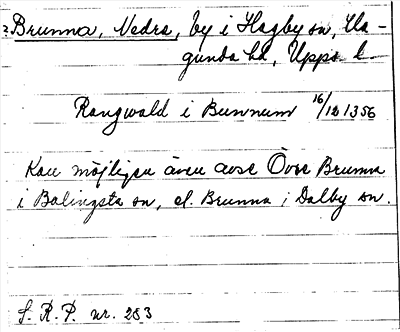 ? Brunna, Nedra, by i Hagby sn, Ha-
gunda hd, Upps. l.
Rangwald i Bunnum 16/12 1356
Kan möjligen även avse Övre Brunna
i Balingsta sn, el. Brunna i Dalby sn.
S. R. P. nr. 253